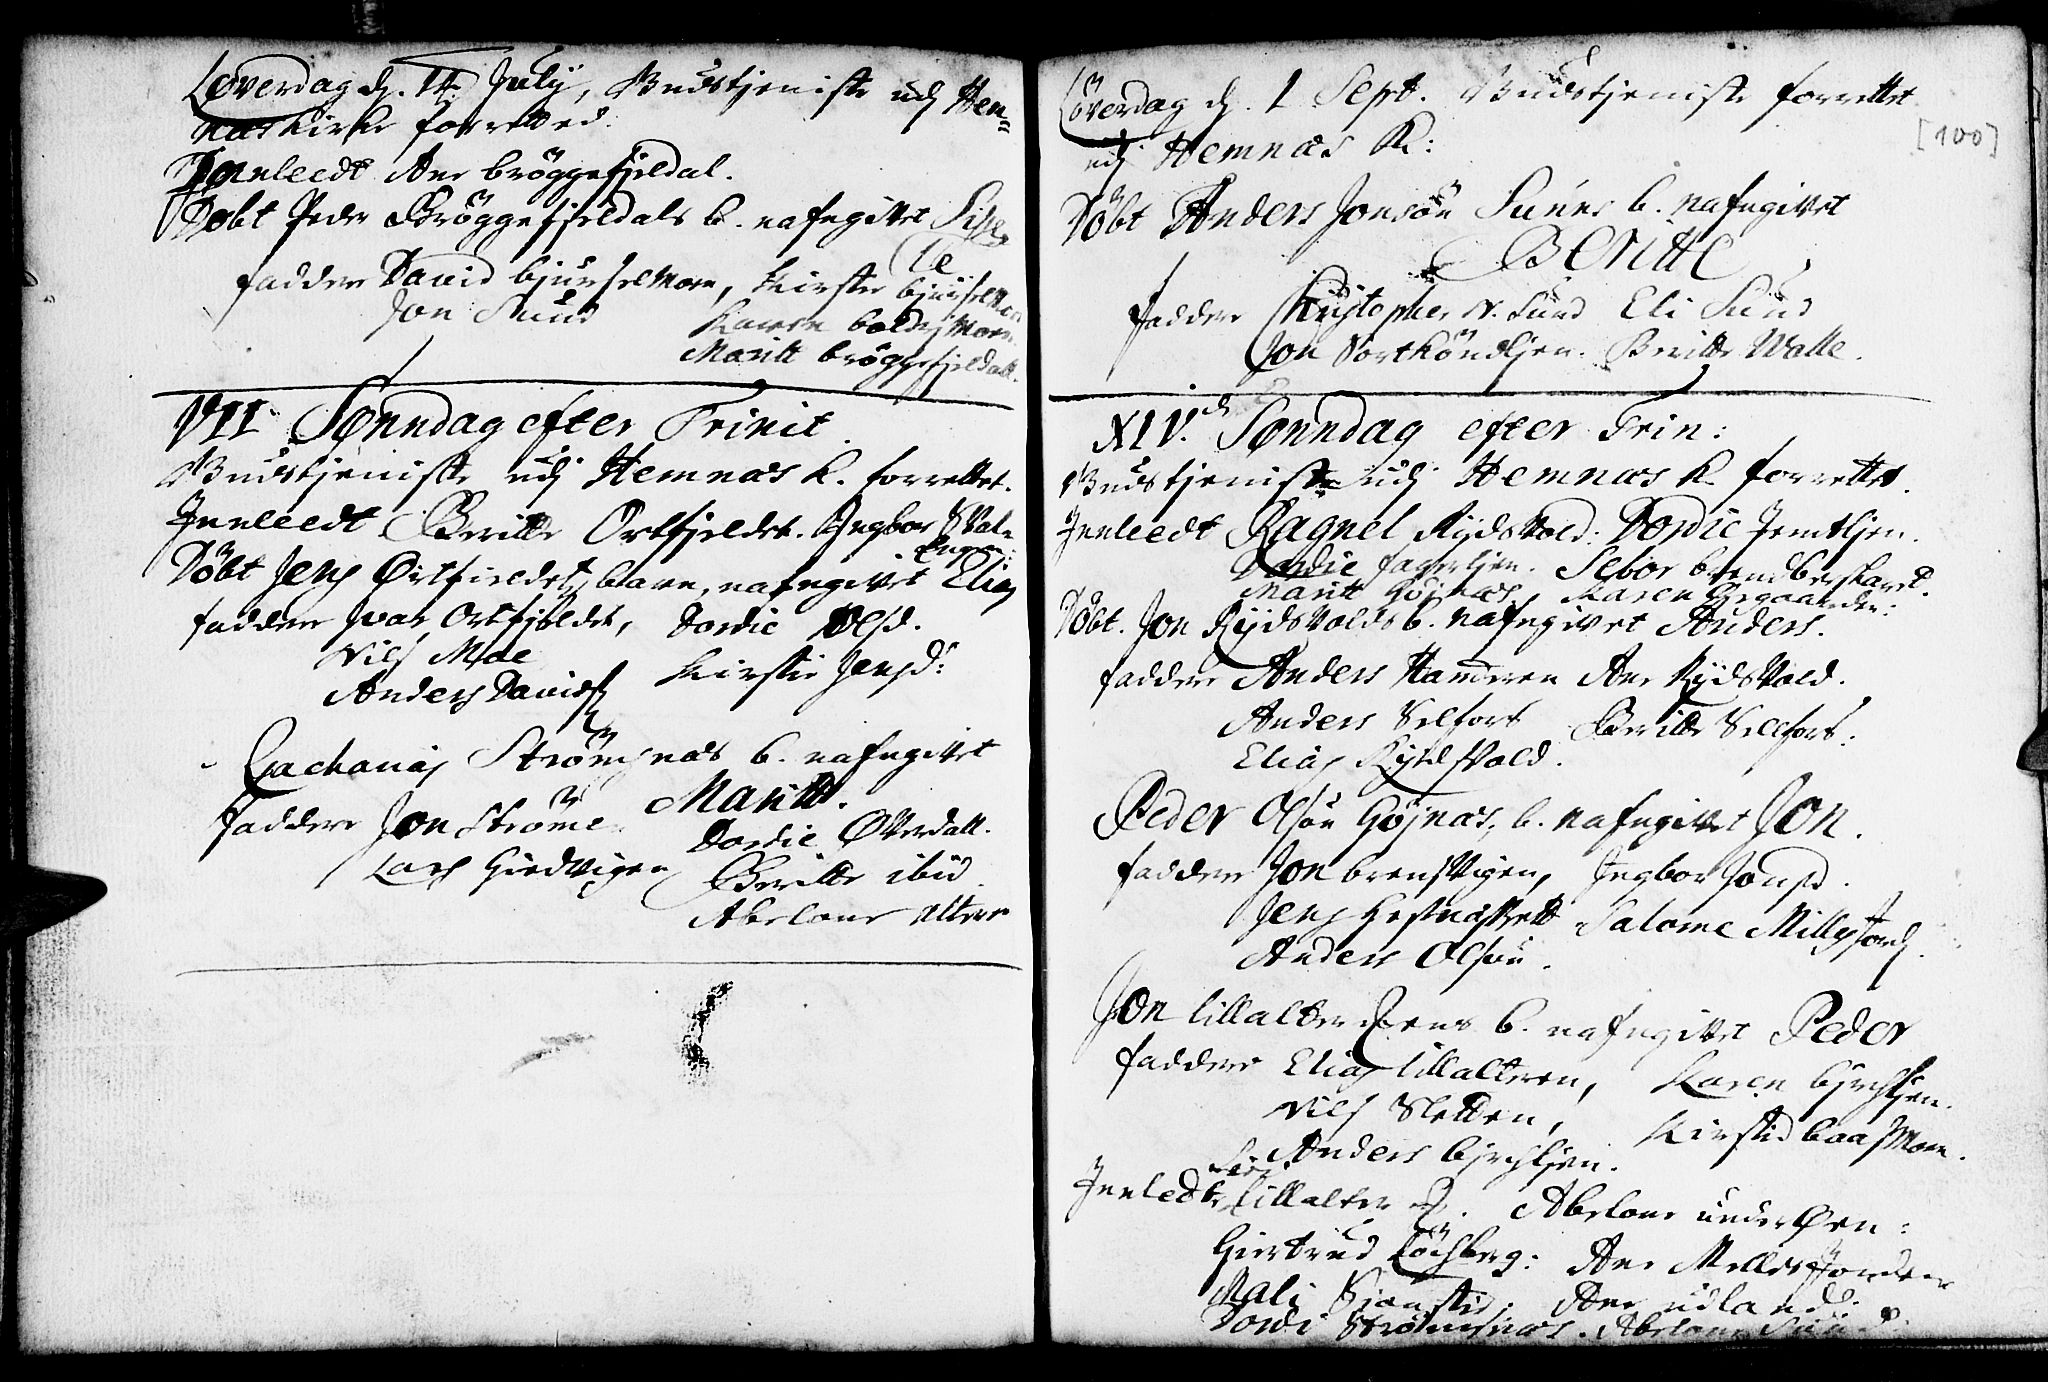 Løverdag dj. 14 July, Gudstjeniste udj Hem-
næs Kirke forretted.
Innleedt Ane brøggefjeldal.
Døbt Peder Brøggefjeldals b. nafngivet Sise-
le
faddere David bjurselmoen, Kirsti bjurselmoen
Jon Sund Karen boldermoen
Maritt brøggefjeldall.
VII Sønndag efter Trinit.
Gudstjeniste udj Hemnæs K. forrettet.
Innleedt Beritte Ortfjeldet. Ingbor Sval-
engen:
Døbt Jens Ortfieldets barn, nafngivet Elias
faddere Ivar Ortfjeldet, Dordie Olsd.
Nils Moe Kirstie Jensd:
Anders Davids.
Zacharias Strømsnæs b. nafngivet
Maritt.
faddere Jon Strøme Dordie Øverdall.
Lars Giedvigen Beritte ibid.
Abelone Alteren
Løverdag dj. 1 Sept. Gudstjeniste forrettet
[100]
udj Hemnæs K:
Døbt Anders Jonsøn Sunds b. nafngivet
Beritte
faddere Christopher N. Sund Eli Sund
Jon Sortkondljen. Beritte Walle.
XIV. Sønndag efter Trin:
Gudstjeniste udj Hemnæs K. forrettet.
Innleedt Ragnel Rydsvold: Dordie Jemtljen.
Dordie fagerljen. Sebor brendberskaret.
Maritt Højnæs, Karen Øegaarden:
Døbt. Jon Rydsvolds b. nafngivet Anders.
faddere Anders Hammeren Ane Rydsvold.
Anders Selfors Beritte Sellfors:
Elias Rydsvold.
Peder Olsøn Højnæs, b. nafngivet Jon.
faddere Jon brensvigen, Ingbor Jonsd.
Jens Hestnæs Salome Millesjord.
Anders Olsøn.
Jon lillalterens b. nafngivet Peder
faddere Elias lillalteren, Karen bjrchljen.
Nils Sletten, Kirstid baasmoen.
Anders bjrchljen.
Innledt lillalter. Abelone underøen:
Giertrud Løchberg: Ane Mellesjorden
Mali Ane udland:
Dordi Strømsnæs. Abelone Sund: